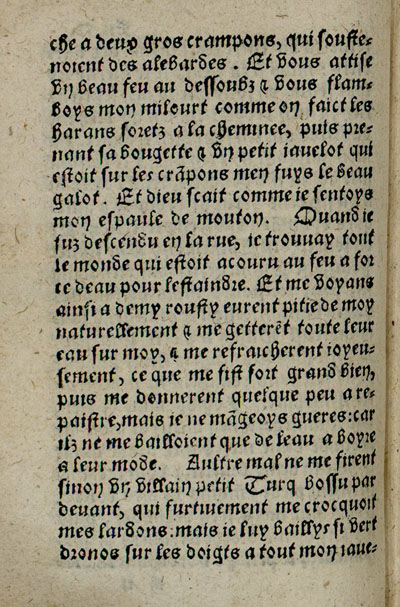 che a deux gros crampons, qui souste-
noient des alebardes. Et vous attise
vn beau feu au dessoubz & vous flam-
boys mon milourt comme on faict les
harans soretz a la cheminee, puis pre-
nant sa bougette & vn petit iauelot qui
estoit sur les crãpons men fuys le beau
galot. Et dieu scait comme ie sentoys
mon espaule de mouton. Quand ie
fuz descendu en la rue, ie trouuay tout
le monde qui estoit acouru au feu a for
ce deau pour lestaindre. Et me voyans
ainsi a demy rousty eurent pitie de moy
naturellement & me getterẽt toute leur
eau sur moy, & me refraicherent ioyeu-
sement, ce que me fist fort grand bien,
puis me donnerent quelque peu a re-
paistre, mais ie ne mãgeoys gueres: car
ilz ne me bailloient que de leau a boyre
a leur mode. Aultre mal ne me firent
sinon vn villain petit Turq bossu par
deuant, qui furtiuement me crocquoit
mes lardons: mais ie luy baillys si vert
dronos sur les doigts a tout mon iaue-